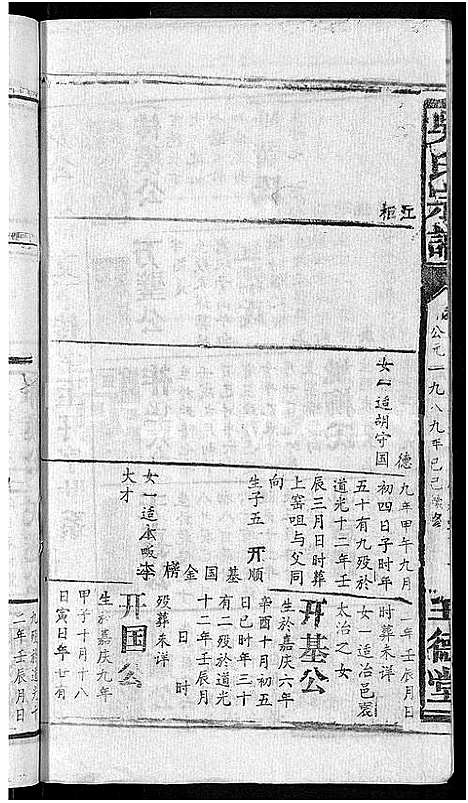 吴氏宗谱
公元一九八九年己巳续修
三德堂
五
柜
德
女一适胡守国
九年甲午九月
初四日子时年
五十有九殁於
道光十二年壬
辰三月日时葬
上窑咀与父同
向
生子五 开顺
基国金榜
女一适本畈李
大才
一年壬辰月日
时葬未详
女一适冶邑袁
太治之女
开基公
生於嘉庆六年
辛酉十月初五
日巳时年三十
有二殁於道光
十二年壬辰月
日 时
殁葬未详
开国公
生於嘉庆九年
甲子十月十八
日寅日年廿有
九殁於道光十
二年壬辰月日